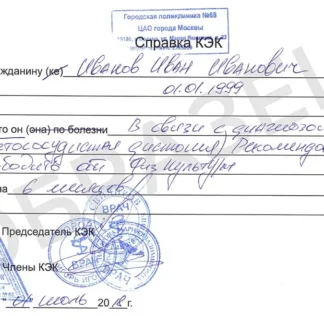 Городская поликлиника №68
ЦАО города Москвы
Справка КЭК
жданину (ке) Иванов Иван Иванович
01.01.1999
то он (она) по болезни В связи с диагнозом
етососудистая дистония) Рекоменд
ободить от физ культуры
на 6 месяцев
Председатель КЭК
Члены КЭК
ВРАЧ
ВРАЧ
ВРАЧ
" 01 " июль 2018 г.
ОБРАЗЕЦ